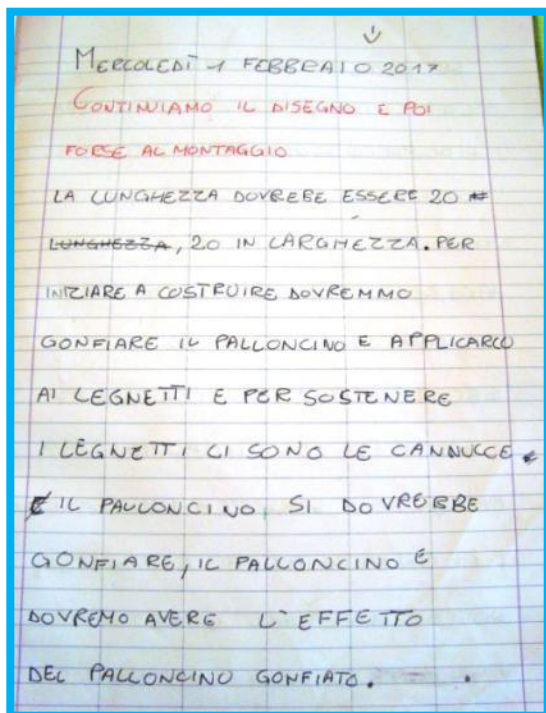 MERCOLEDÌ 1 FEBBRAIO 2017
CONTINUIAMO IL DISEGNO E POI
FORSE AL MONTAGGIO
LA LUNGHEZZA DOVREBE ESSERE 20
LUNGHEZZA, 20 IN LARGHEZZA. PER
INIZIARE A COSTRUIRE DOVREMMO
GONFIARE IL PALLONCINO E APPLICARLO
AI LEGNETTI E PER SOSTENERE
I LEGNETTI CI SONO LE CANNUCCE
IL PALLONCINO SI DOVREBBE
GONFIARE, IL PALLONCINO E
DOVREMO AVERE L'EFFETTO
DEL PALLONCINO GONFIATO.